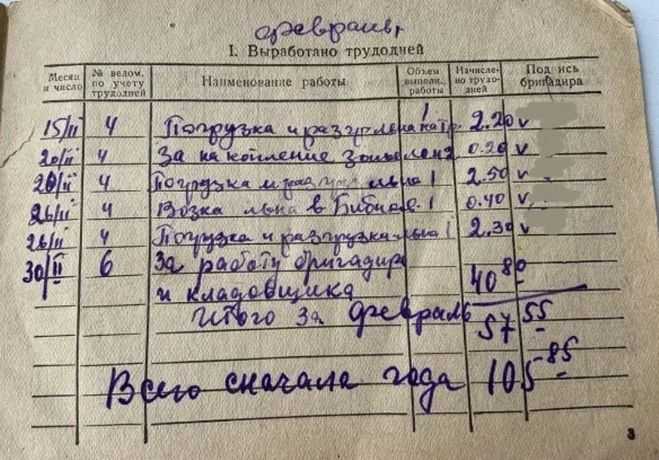 февраль
I. Выработано трудодней
Месяц и число № ведом. по учету трудодней Наименование работы Объем выполн. работы Начислено трудодней Подпись бригадира
15/II 4 Погрузка и разгр. льна 1 2.20 v
20/II 4 За накопление золы 0.20 v
20/II 4 Погрузка и разгруз льна 1 2.50 v
26/II 4 Возка льна в 1 0.40 v
26/II 4 Погрузка и разгрузка льна 1 2.30 v
30/II 6 За работу бригадира
и кладовщика 40 80
Итого за февраль 57 55
Всего сначала года 105-85
3